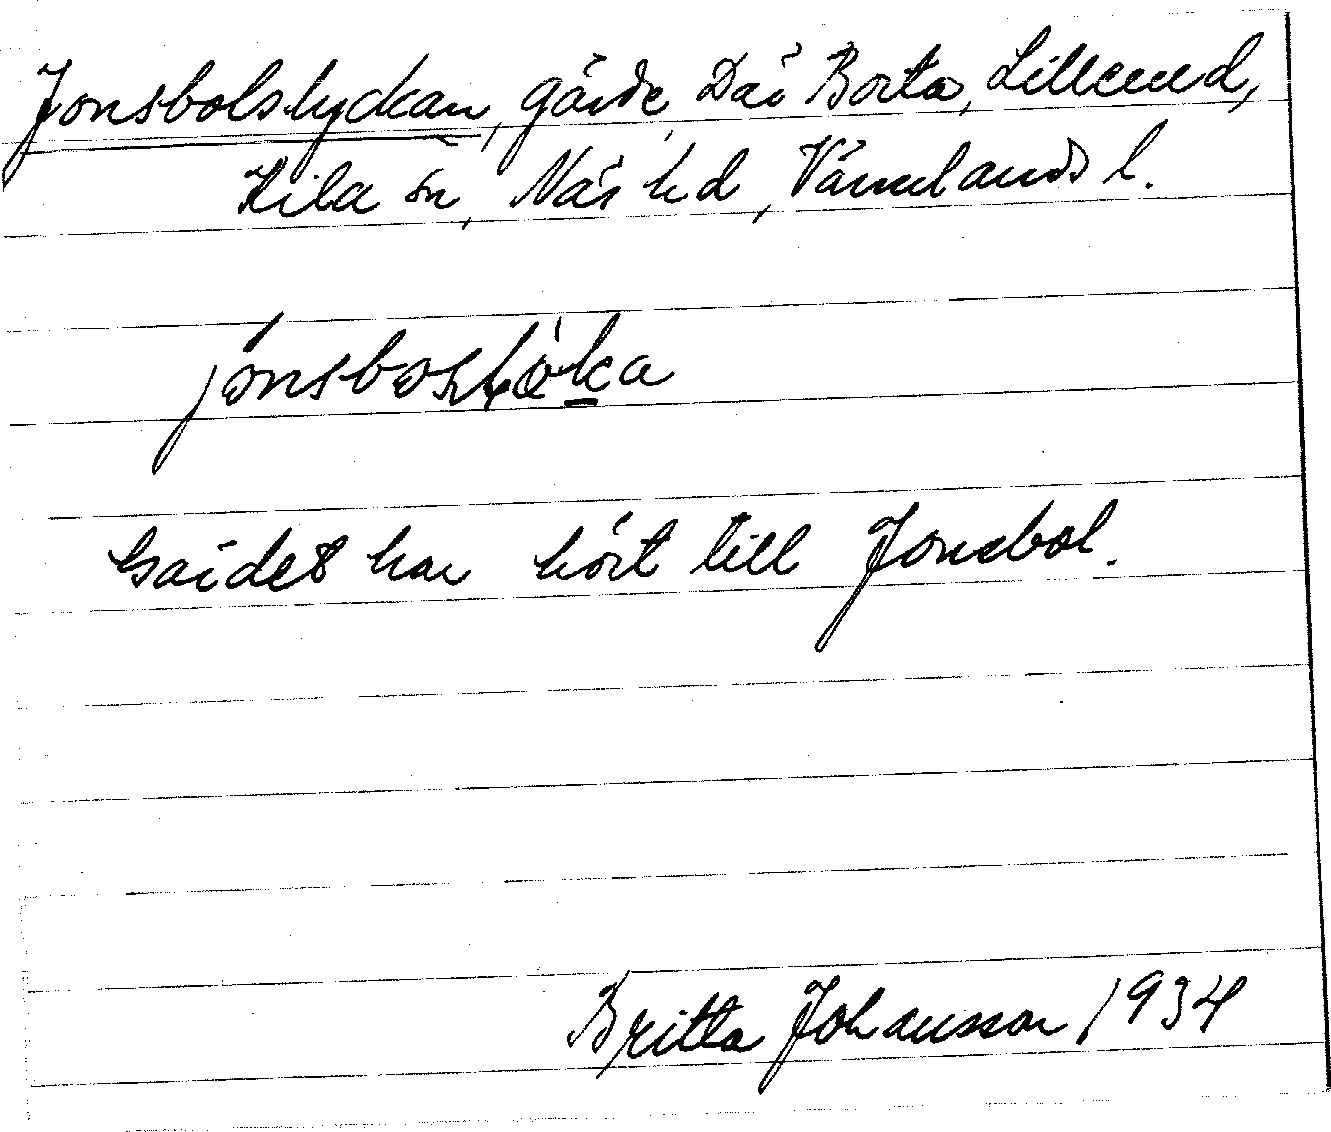 Jonsbolslyckan, gärde, Där Borta, Lillerud,
Kila sn, Näs hd, Värmlands l.
jonsboslöka
Gärdet har hört till Jonsbol.
Britta Johansson 1934